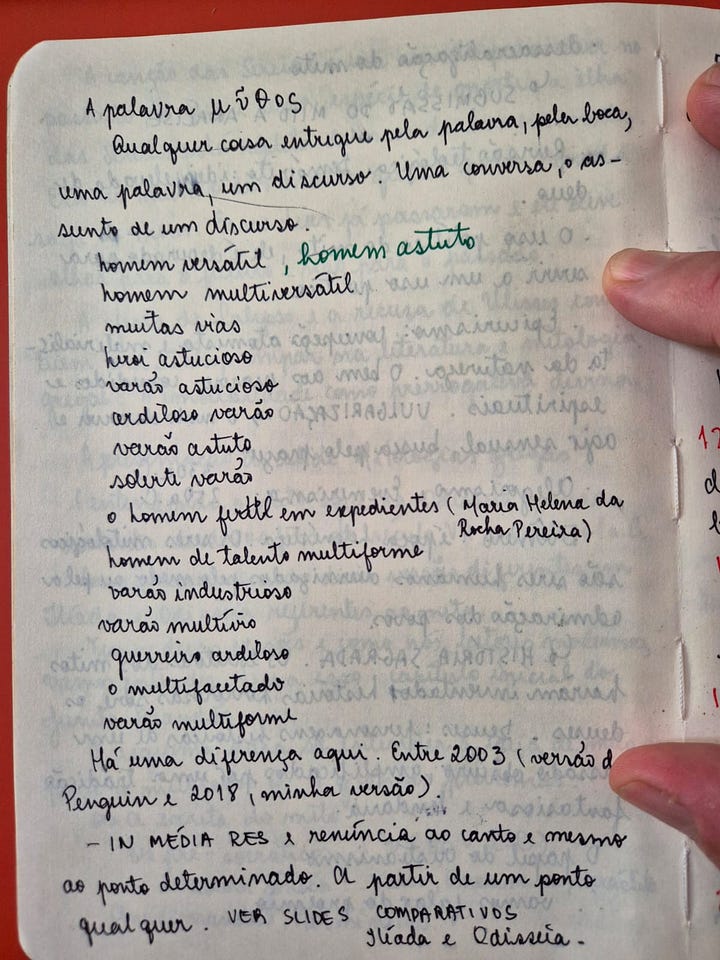 A palavra μῦθος
Qualquer coisa entregue pela palavra, pela boca,
uma palavra, um discurso. Uma conversa, o as-
sunto de um discurso.
homem versátil, homem astuto
homem multiversátil
muitas vias
herói astucioso
varão astucioso
ardiloso varão
varão astuto
solerte varão
o homem fértil em expedientes (Maria Helena da
Rocha Pereira)
homem de talento multiforme
varão industrioso
varão multívio
guerreiro ardiloso
o multifacetado
varão multiforme
Há uma diferença aqui. Entre 2003 (versão d
Penguin e 2018, minha versão).
– IN MÉDIA RES e renúncia ao canto e mesmo
ao ponto determinado. A partir de um ponto
qualquer. VER SLIDES COMPARATIVOS
Ilíada e Odisseia.